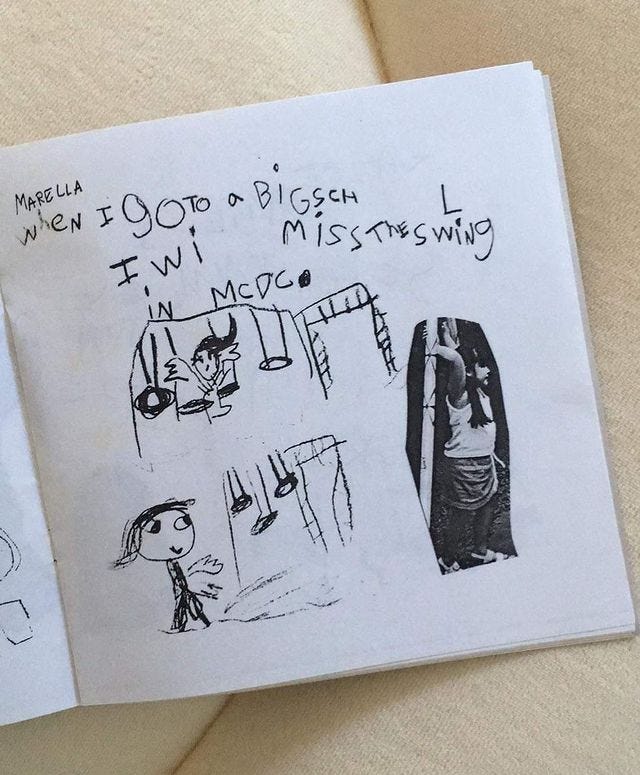 MARELLA
WhEN I gOTO a BiGSCH L
I wi MiSSTHESWiNg
iN MCDC.